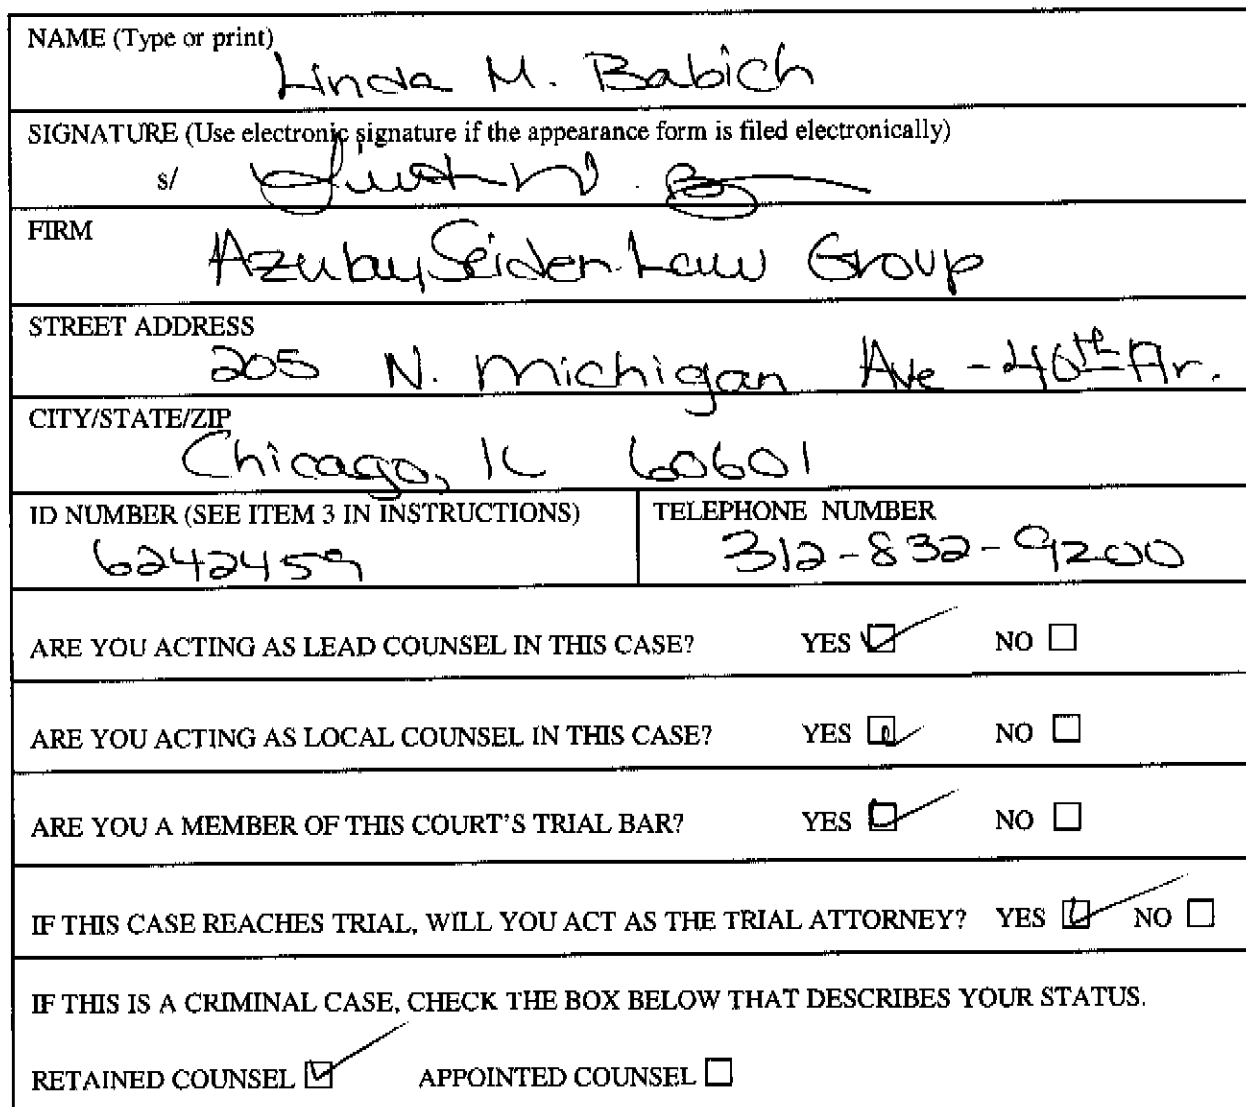 NAME (Type or print)
Linda M. Babich
SIGNATURE (Use electronic signature if the appearance form is filed electronically)
s/
FIRM
Azulay Seiden Law Group
STREET ADDRESS
205 N. Michigan Ave - 40th Flr.
CITY/STATE/ZIP
Chicago, IL 60601
ID NUMBER (SEE ITEM 3 IN INSTRUCTIONS)
6242459
TELEPHONE NUMBER
312-832-9200
ARE YOU ACTING AS LEAD COUNSEL IN THIS CASE? YES NO
ARE YOU ACTING AS LOCAL COUNSEL IN THIS CASE? YES NO
ARE YOU A MEMBER OF THIS COURT'S TRIAL BAR? YES NO
IF THIS CASE REACHES TRIAL, WILL YOU ACT AS THE TRIAL ATTORNEY? YES NO
IF THIS IS A CRIMINAL CASE, CHECK THE BOX BELOW THAT DESCRIBES YOUR STATUS.
RETAINED COUNSEL APPOINTED COUNSEL